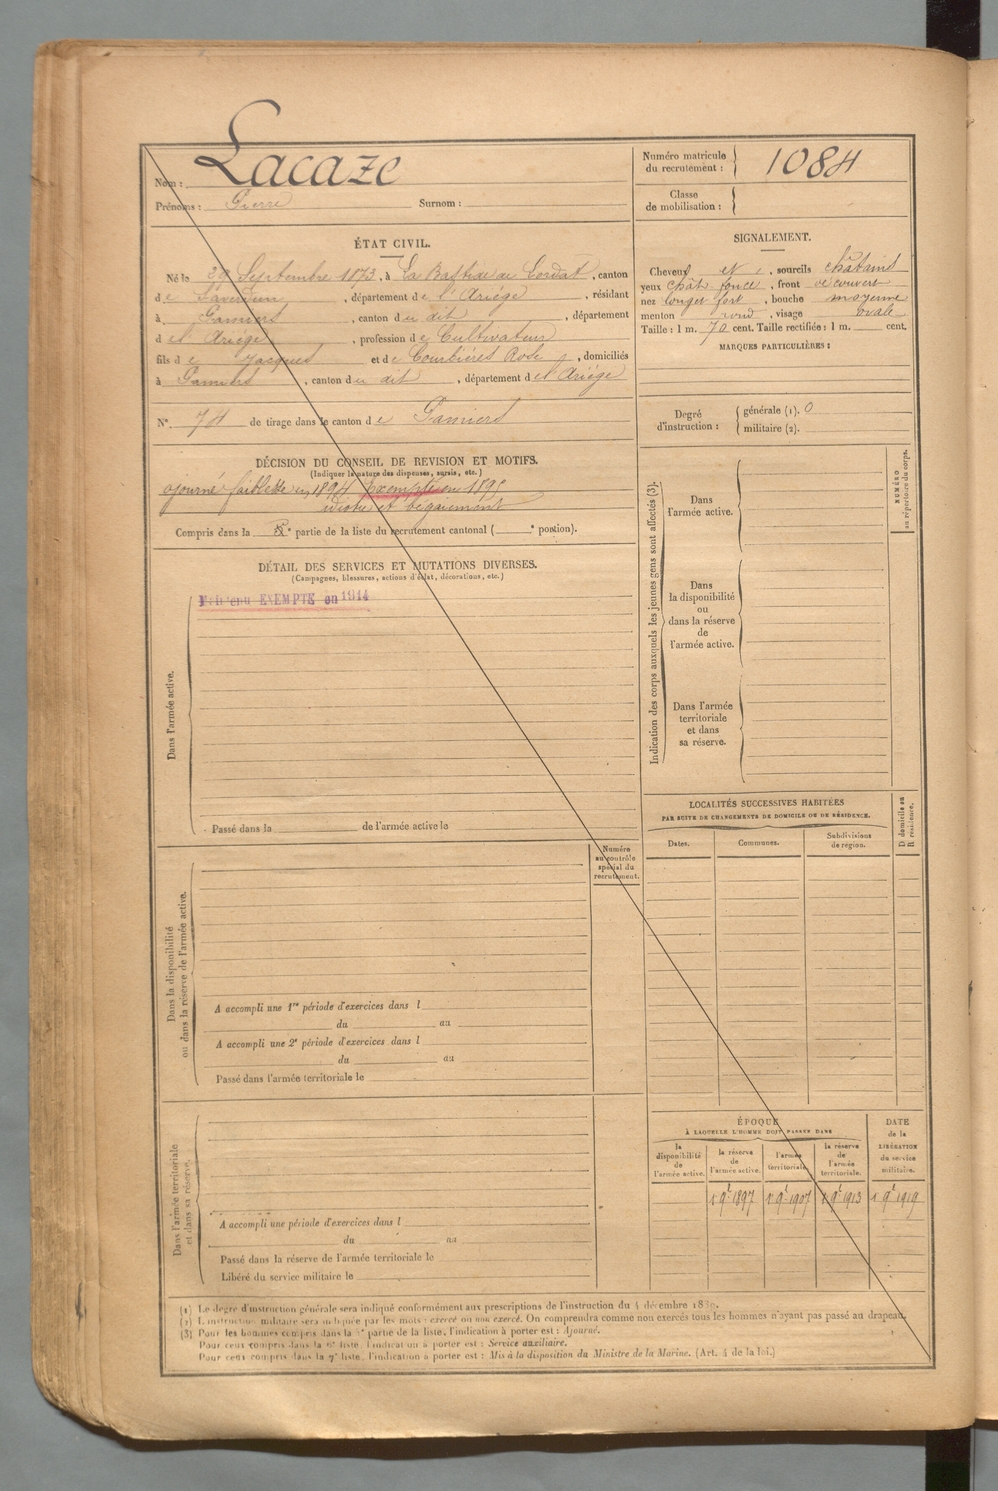 Nom : Lacaze
Prénoms : Pierre Surnom :
Numéro matricule du recrutement : 1084
Classe de mobilisation :
ÉTAT CIVIL.
Né le 29 Septembre 1873, à La Bastide de Lordat, canton
de Saverdun, département de l'Ariége, résidant
à Pamiers, canton du dit, département
d el Ariége, profession de Cultivateur
fils de Jacques et de Courbières Rose, domiciliés
à Pamiers, canton du dit, département d el Ariége
N° 74 de tirage dans le canton de Pamiers
SIGNALEMENT.
Cheveux et, sourcils châtains
yeux chât foncé, front découvert
nez longet fort, bouche moyenne
menton rond, visage ovale
Taille : 1 m. 70 cent. Taille rectifiée : 1 m. cent.
MARQUES PARTICULIÈRES :
Degré d'instruction :
générale (1). 0
militaire (2).
DÉCISION DU CONSEIL DE REVISION ET MOTIFS.
(Indiquer la nature des dispenses, sursis, etc.)
ajourné faiblesse en 1894 Exempté en 1895
idiotie et bégaiement
Compris dans la partie de la liste du recrutement cantonal ( e portion).
DÉTAIL DES SERVICES ET MUTATIONS DIVERSES.
(Campagnes, blessures, actions d'éclat, décorations, etc.)
Maintenu EXEMPTÉ en 1914
Dans l'armée active.
Passé dans la de l'armée active le
Indication des corps auxquels les jeunes gens sont affectés (3).
NUMÉRO au répertoire du corps.
Dans l'armée active.
Dans la disponibilité ou dans la réserve de l'armée active.
Dans l'armée territoriale et dans sa réserve.
LOCALITÉS SUCCESSIVES HABITÉES
PAR SUITE DE CHANGEMENTS DE DOMICILE OU DE RÉSIDENCE.
Dates. Communes. Subdivisions de région.
D domicile ou R résidence.
Numéro au contrôle spécial du recrutement.
Dans la disponibilité ou dans la réserve de l'armée active.
A accompli une 1re période d'exercices dans l
du au
A accompli une 2e période d'exercices dans l
du au
Passé dans l'armée territoriale le
Dans l'armée territoriale et dans sa réserve.
A accompli une période d'exercices dans l
du au
Passé dans la réserve de l'armée territoriale le
Libéré du service militaire le
ÉPOQUE
À LAQUELLE L'HOMME DOIT PASSER DANS
DATE de la LIBÉRATION du service militaire.
la disponibilité de l'armée active.
la réserve de l'armée active.
l'armée territoriale.
la réserve de l'armée territoriale.
1 9bre 1897 1 9bre 1907 1 9bre 1913 1 9bre 1919
(1) Le degré d'instruction générale sera indiqué conformément aux prescriptions de l'instruction du 4 décembre 1889.
(2) L'instruction militaire sera indiquée par les mots : exercé ou non exercé. On comprendra comme non exercés tous les hommes n'ayant pas passé au drapeau.
(3) Pour les hommes compris dans la partie de la liste, l'indication à porter est : Ajourné.
Pour ceux compris dans la 6e liste, l'indication à porter est : Service auxiliaire.
Pour ceux compris dans la 7e liste, l'indication à porter est : Mis à la disposition du Ministre de la Marine. (Art. 4 de la loi.)